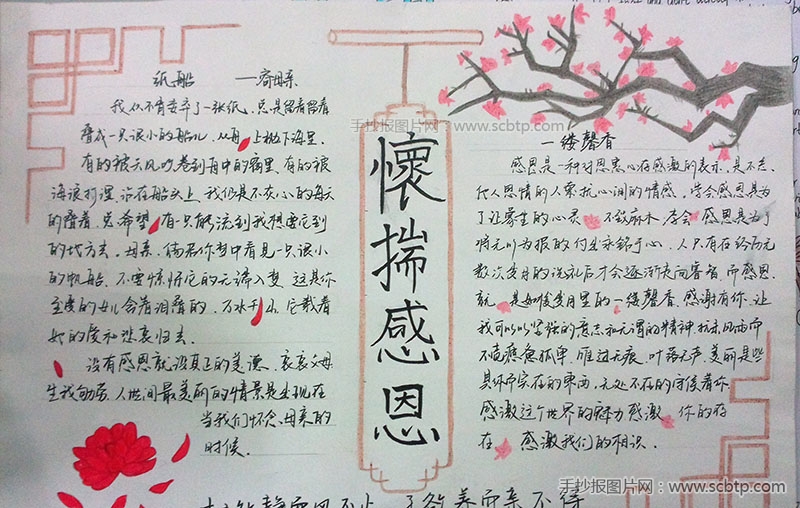 纸船 ——寄母亲
我从不肯妄弃了一张纸，总是留着留着
叠成一只很小的船儿，从舟上抛下海里。
有的被天风吹卷到舟中的窗里，有的被
海浪打湿，沾在船头上。我仍是不灰心的每天
的叠着，总希望有一只能流到我想要它到
的地方去。母亲，倘若你梦中看见一只很小
的帆船，不要惊讶它的无端入梦。这是你
至爱的女儿含着泪叠的，万水千山，它载着
她的爱和悲哀归去。
没有感恩就没真正的美德。哀哀父母
生我劬劳，人世间最美丽的情景是出现在
当我们怀念母亲的
时候。
懷
揣
感
恩
手抄报图片网：www.scbtp.com
一缕馨香
感恩是一种对恩惠心存感激的表示，是不忘
他人恩情的人萦绕心间的情感。学会感恩是为
了 蒙尘的心灵 不致麻木，学会感恩是为了
将无以为报的付出永铭于心。人只有在经历无
数次 的洗礼后才会逐渐走向睿智，而感恩
就 是 岁月里的一缕馨香。感谢有你，让
我可以以坚强的意志和无谓的精神抗 风雨而
不 孤单。雁过无痕，叶落无声，美丽是些
具体而实在的东西，无处不在的守候着你。
感激这个世界的魅力，感激 你的存
在， 感激我们的相识。
手抄报图片网：www.scbtp.com
静而风不止 子欲养而亲不待